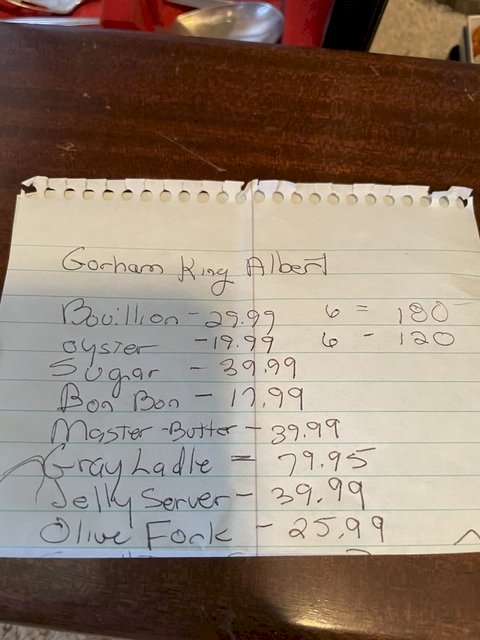 Gorham King Albert
Bouillion - 29.99 6 = 180-
oyster - 19.99 6 - 120
Sugar - 39.99
Bon Bon - 17.99
Master-Butter - 39.99
Gray Ladle = 79.95
Jelly Server - 39.99
Olive Fork - 25.99